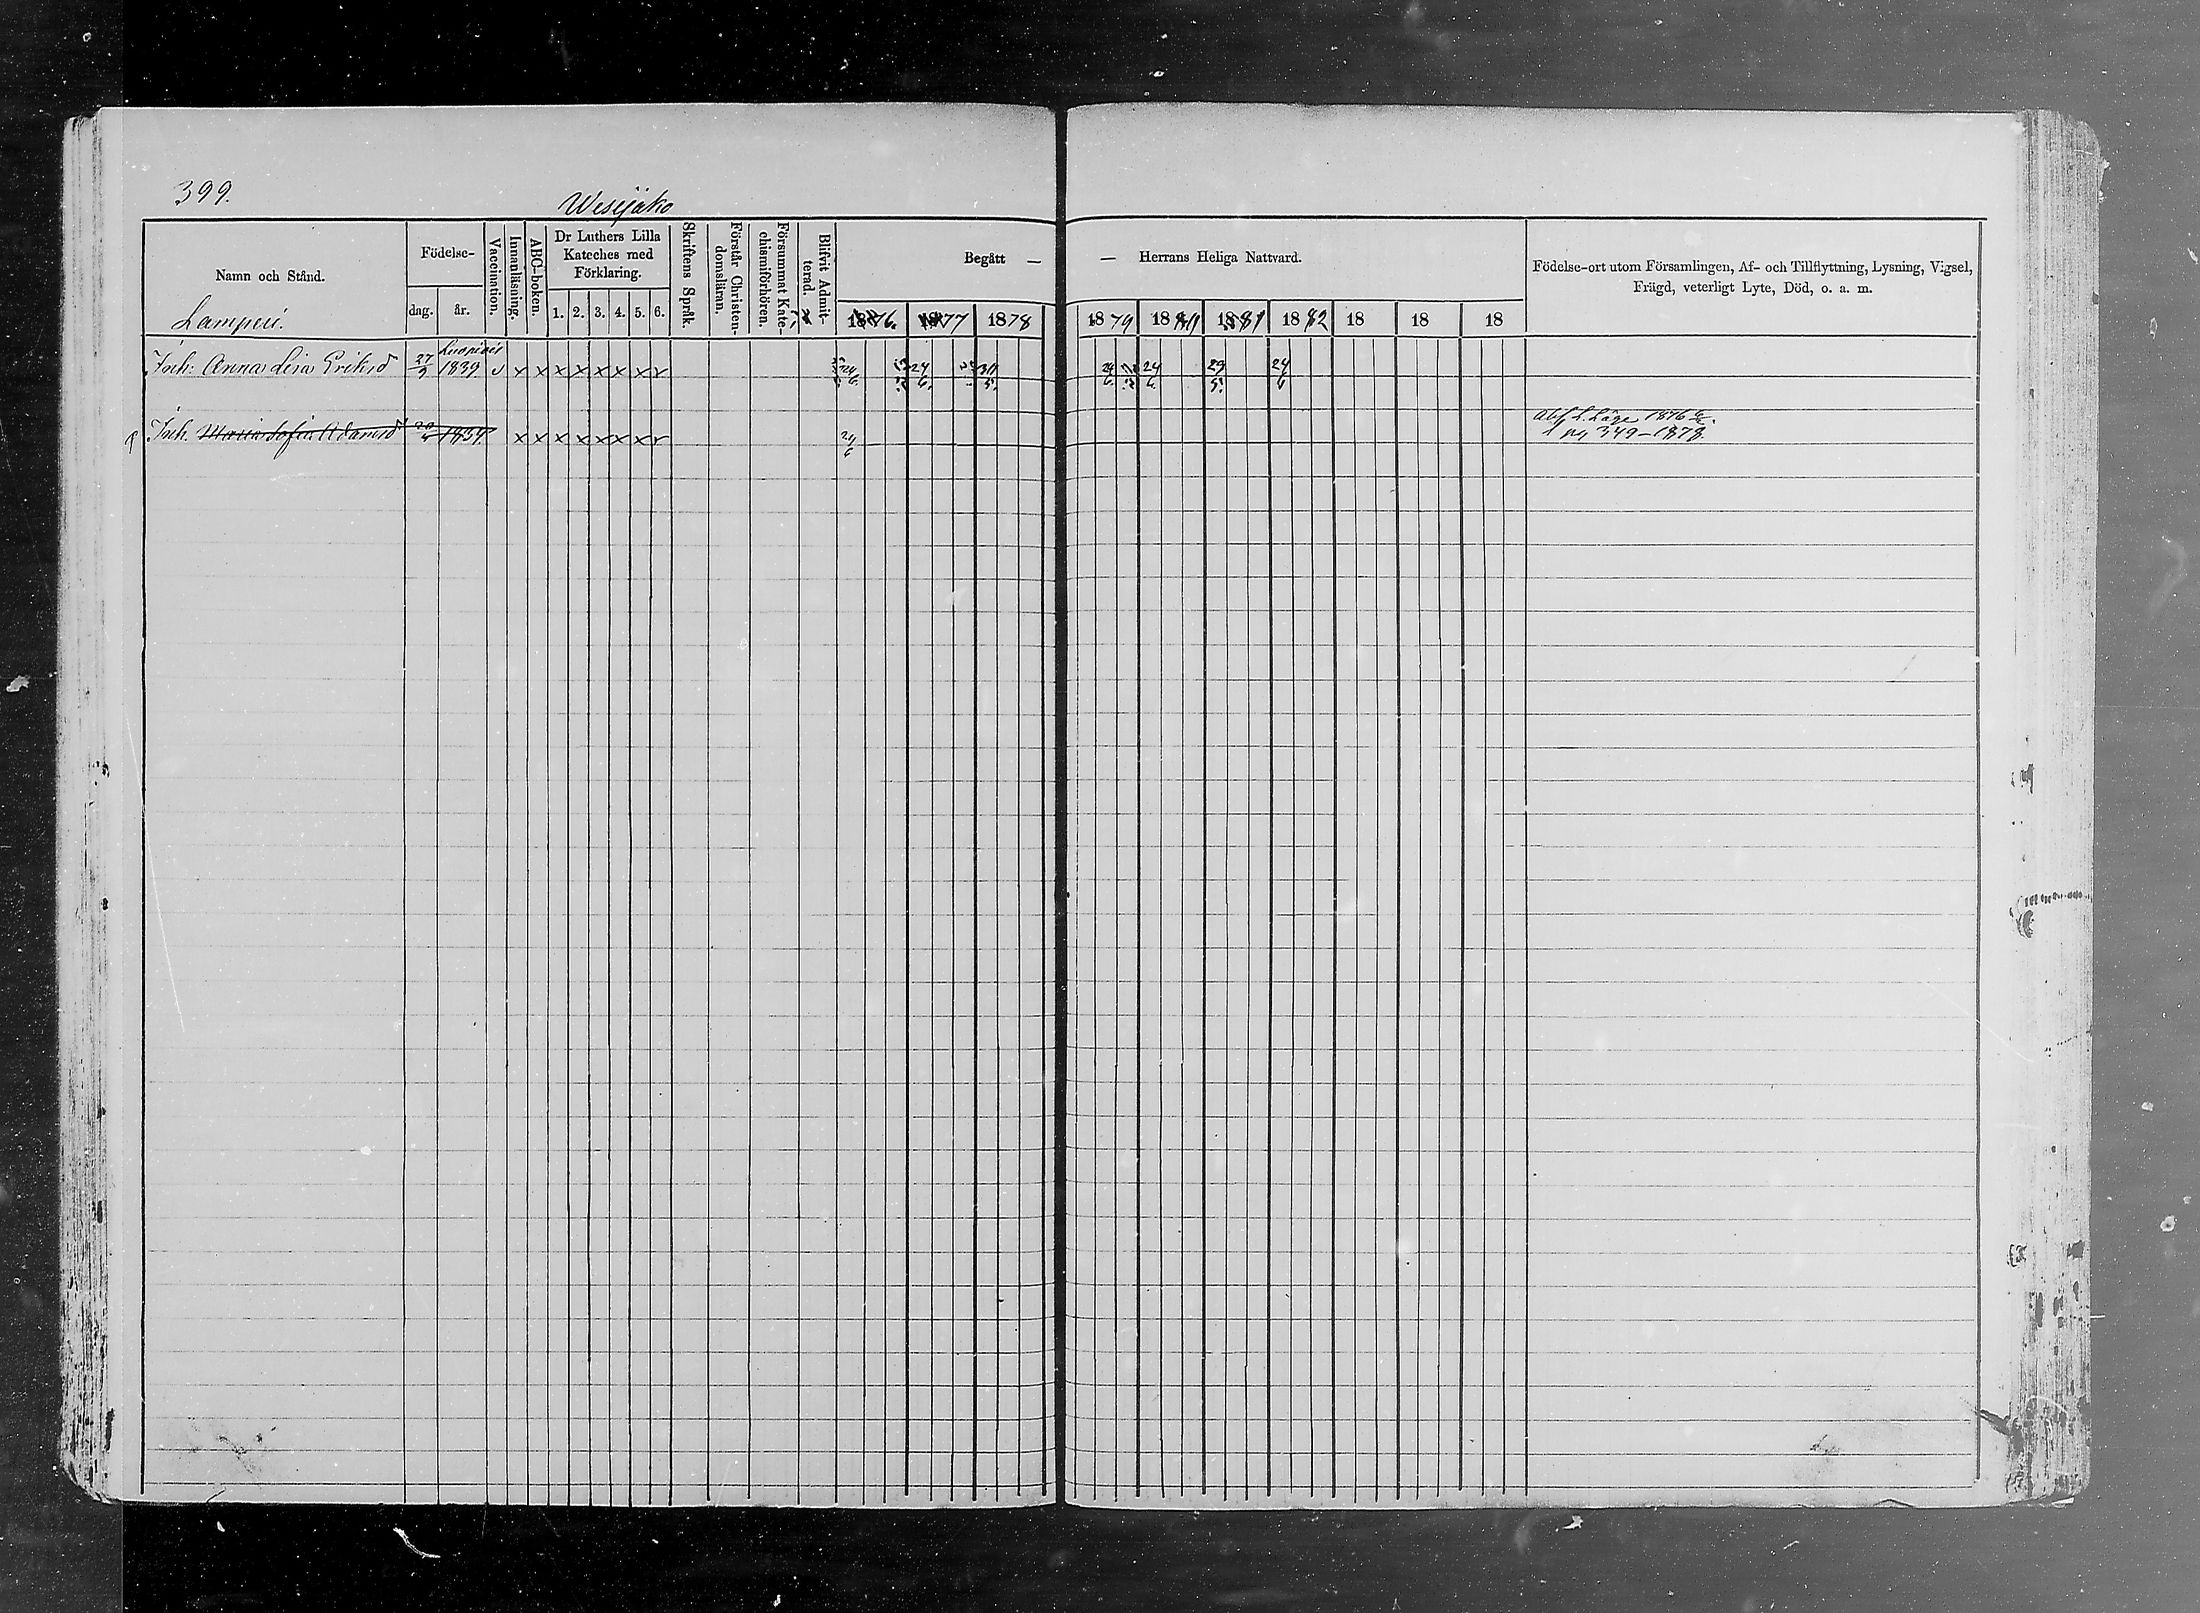 399.
Wesijako
Namn och Stånd.
Lamperi.
Födelse-
dag. år.
Vaccination.
Innanläsning.
ABC-boken.
Dr Luthers Lilla
Kateches med
Förklaring.
1. 2. 3. 4. 5. 6.
Skriftens Språk.
Förstår Christen-
domsläran.
Försummat Kate-
chismiförhören.
Blifvit Admit-
terad.
Begått — — Herrans Heliga Nattvard.
1876. 1877 1878 1879 1880 1881 1882 18 18 18
Födelse-ort utom Församlingen, Af- och Tillflyttning, Lysning, Vigsel,
Frägd, veterligt Lyte, Död, o. a. m.
Inh: Anna Lisa Eriksd 27/9 1839 v x x x x x x x x 24/6 24/6. 30/5. 24/6 24/6. 29/5. 24/6
Inh. Maria Sofia Adamsd 20 1834 x x x x x x x x 24/6
1876
pag 349-1878.